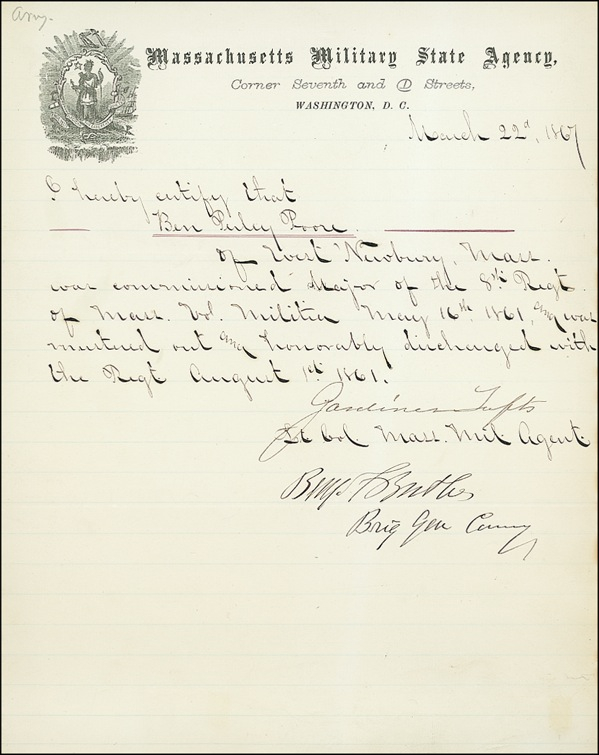 Army.
Massachusetts Military State Agency,
Corner Seventh and D Streets,
WASHINGTON, D. C.
March 22d, 1867
I hereby certify that
Ben Perley Poore
of West Newbury, Mass.
was commissioned Major of the 8th Regt.
of Mass. Vol. Militia May 16th 1861, and was
mustered out and honorably discharged with
the Regt August 1st 1861.
Gardiner Tufts
Lt Col Mass. Mil Agent.
Benj F Butler
Brig Gen Comg